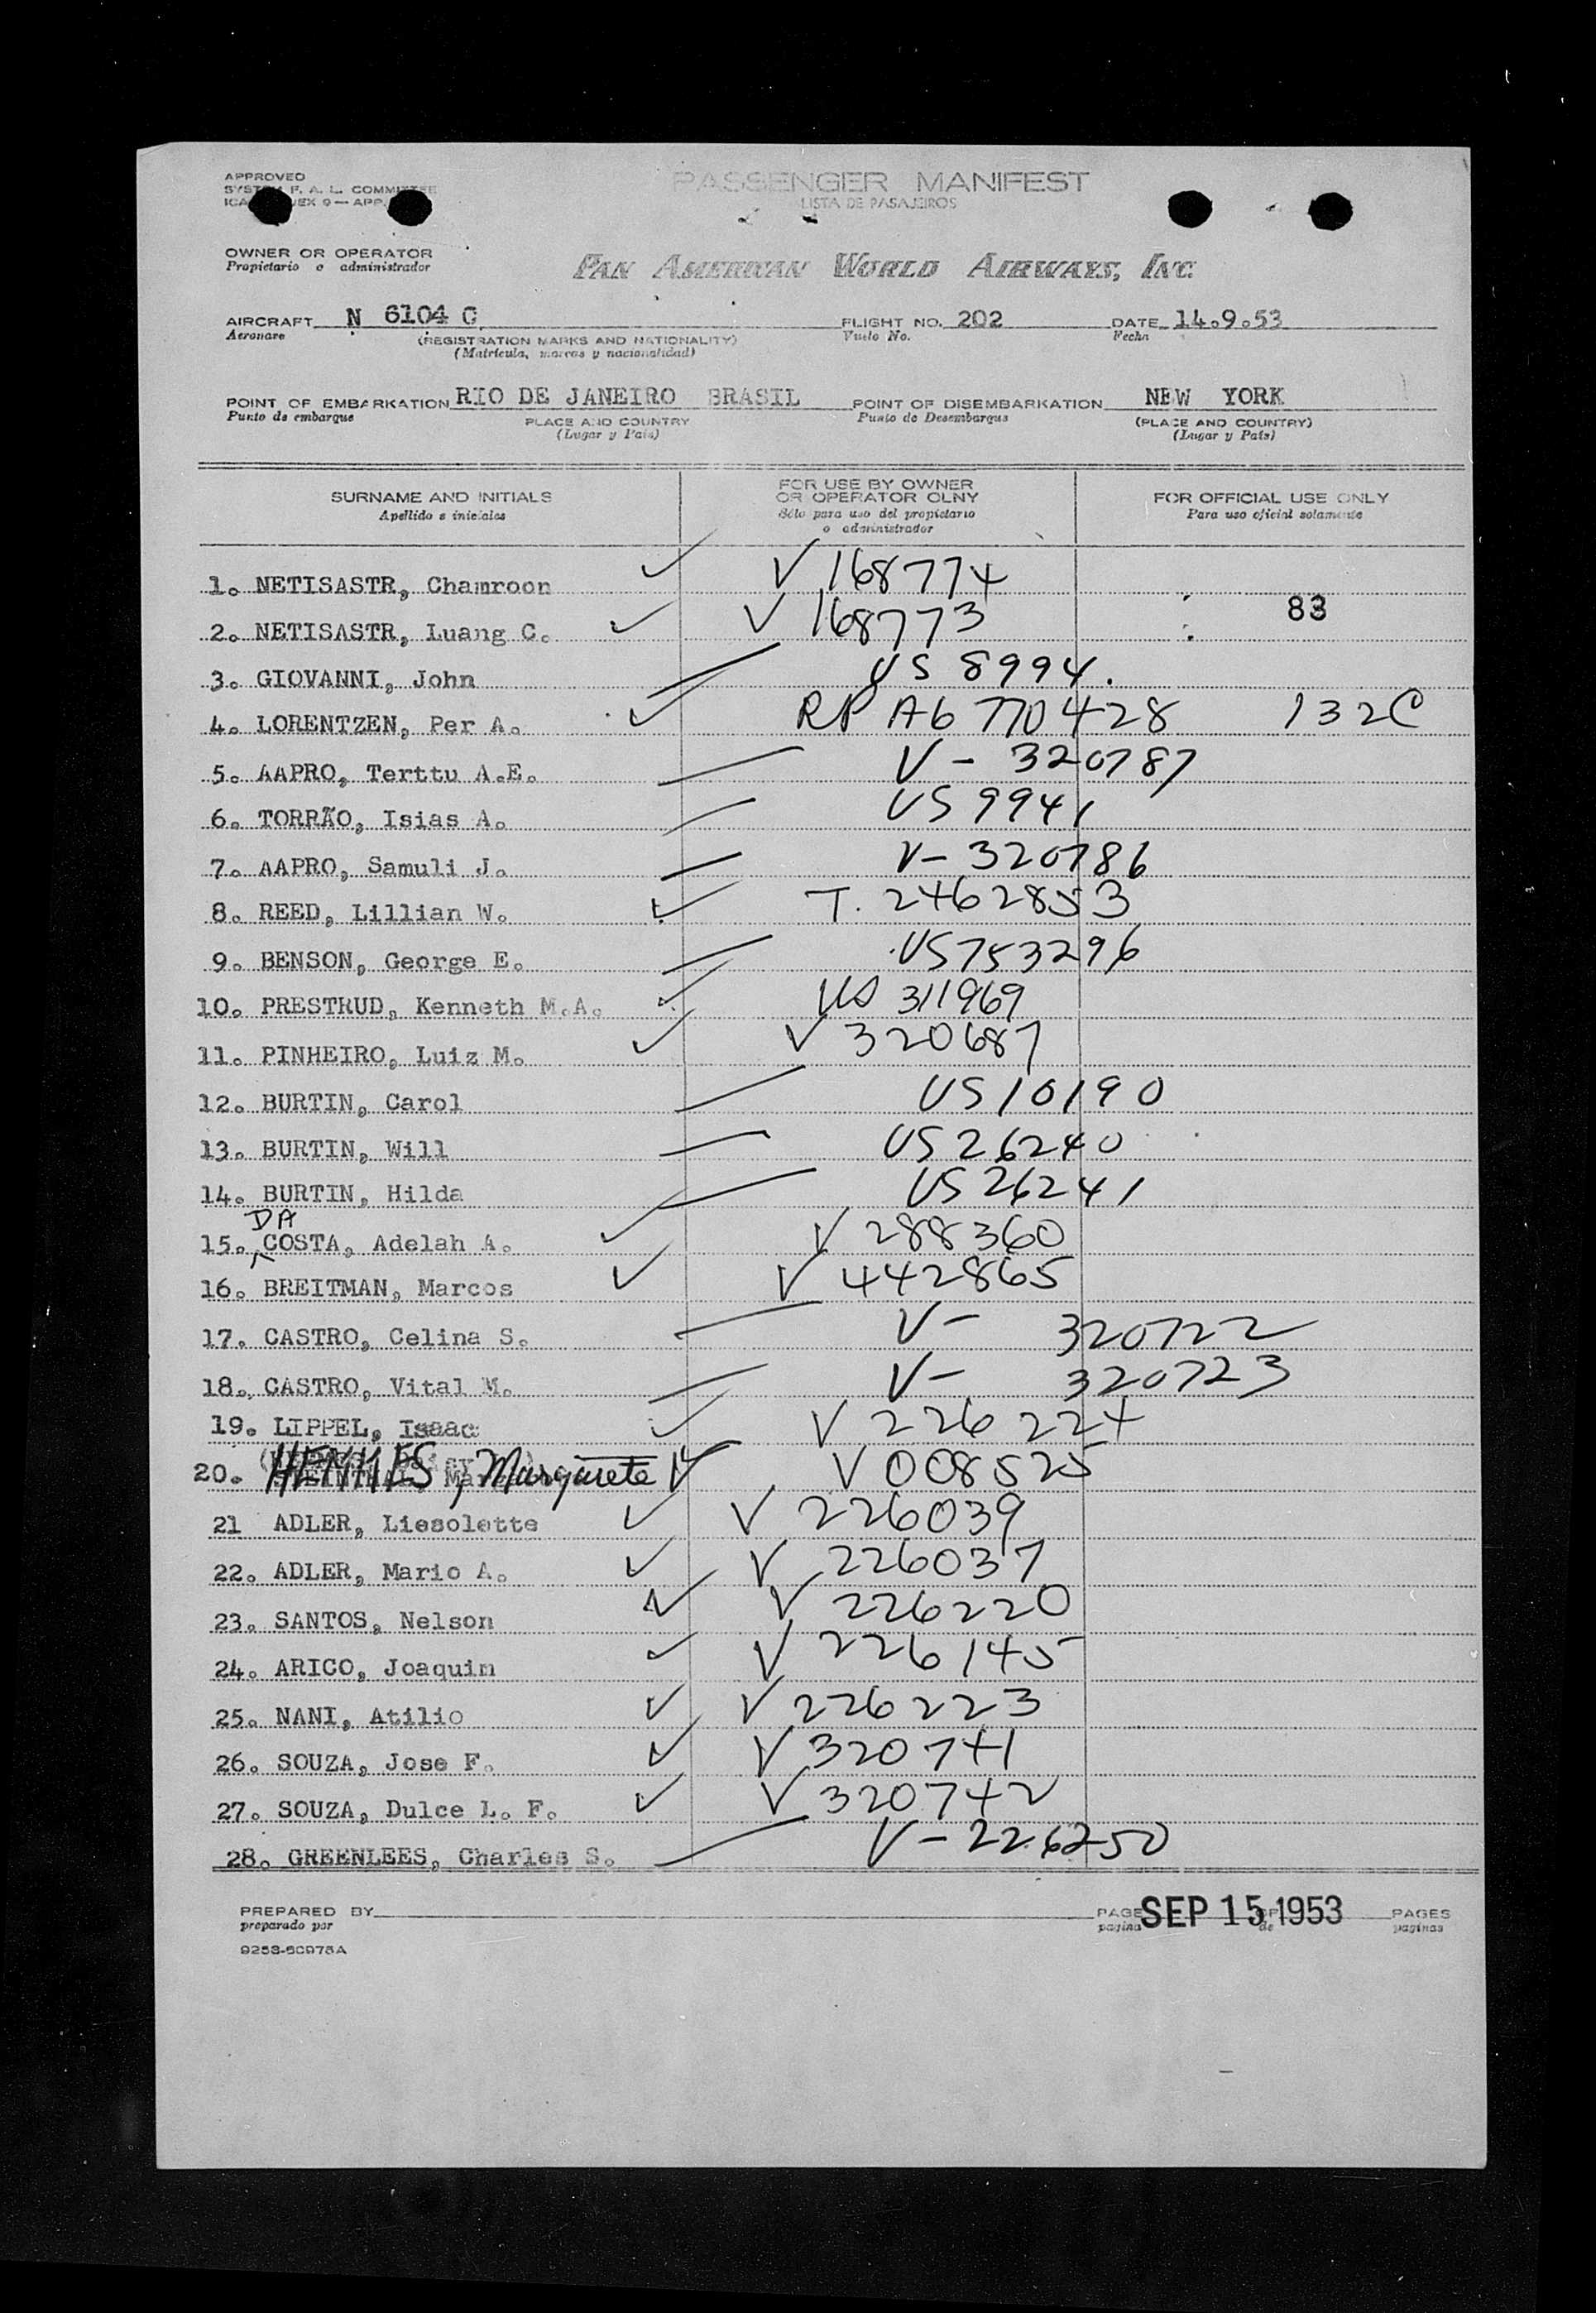 APPROVED
PASSENGER MANIFEST
LISTA DE PASAJEIROS
OWNER OR OPERATOR
Propietario o administrador
PAN AMERICAN WORLD AIRWAYS, INC
AIRCRAFT N 6104 C FLIGHT NO. 202 DATE 14.9.53
Aeronave (REGISTRATION MARKS AND NATIONALITY) Vuelo No. Fecha
(Matrícula, marcas y nacionalidad)
POINT OF EMBARKATION RIO DE JANEIRO BRASIL POINT OF DISEMBARKATION NEW YORK
Punto de embarque PLACE AND COUNTRY Punto de Desembarque (PLACE AND COUNTRY)
(Lugar y País) (Lugar y País)
SURNAME AND INITIALS FOR USE BY OWNER OR OPERATOR OLNY FOR OFFICIAL USE ONLY
Apellido e iniciales Sólo para uso del propietario o administrador Para uso oficial solamente
1. NETISASTR, Chamroon ✓ V 168774
2. NETISASTR, Luang C. ✓ V 168773 83
3. GIOVANNI, John US 8994.
4. LORENTZEN, Per A. ✓ RP A6 770428 132C
5. AAPRO, Terttu A.E. V- 320787
6. TORRÃO, Isias A. US 9941
7. AAPRO, Samuli J. V- 320786
8. REED, Lillian W. ✓ T. 2462853
9. BENSON, George E. US753296
10. PRESTRUD, Kenneth M.A. ✓ US 311969
11. PINHEIRO, Luiz M. ✓ V 320687
12. BURTIN, Carol US10190
13. BURTIN, Will US26240
14. BURTIN, Hilda US26241
15. DA COSTA, Adelah A. ✓ V 288360
16. BREITMAN, Marcos ✓ V 442865
17. CASTRO, Celina S. V- 320722
18. CASTRO, Vital M. V- 320723
19. LIPPEL, Isaac ✓ V 226224
20. Margarete ✓ V 008525
21 ADLER, Liesolotte ✓ V 226039
22. ADLER, Mario A. ✓ V 226037
23. SANTOS, Nelson ✓ V 226220
24. ARICO, Joaquim ✓ V 226145
25. NANI, Atilio ✓ V 226223
26. SOUZA, Jose F. ✓ V 320741
27. SOUZA, Dulce L. F. ✓ V 320742
28. GREENLEES, Charles S. V-226250
PREPARED BY PAGE SEP 15 1953 PAGES
preparado por pagina de paginas